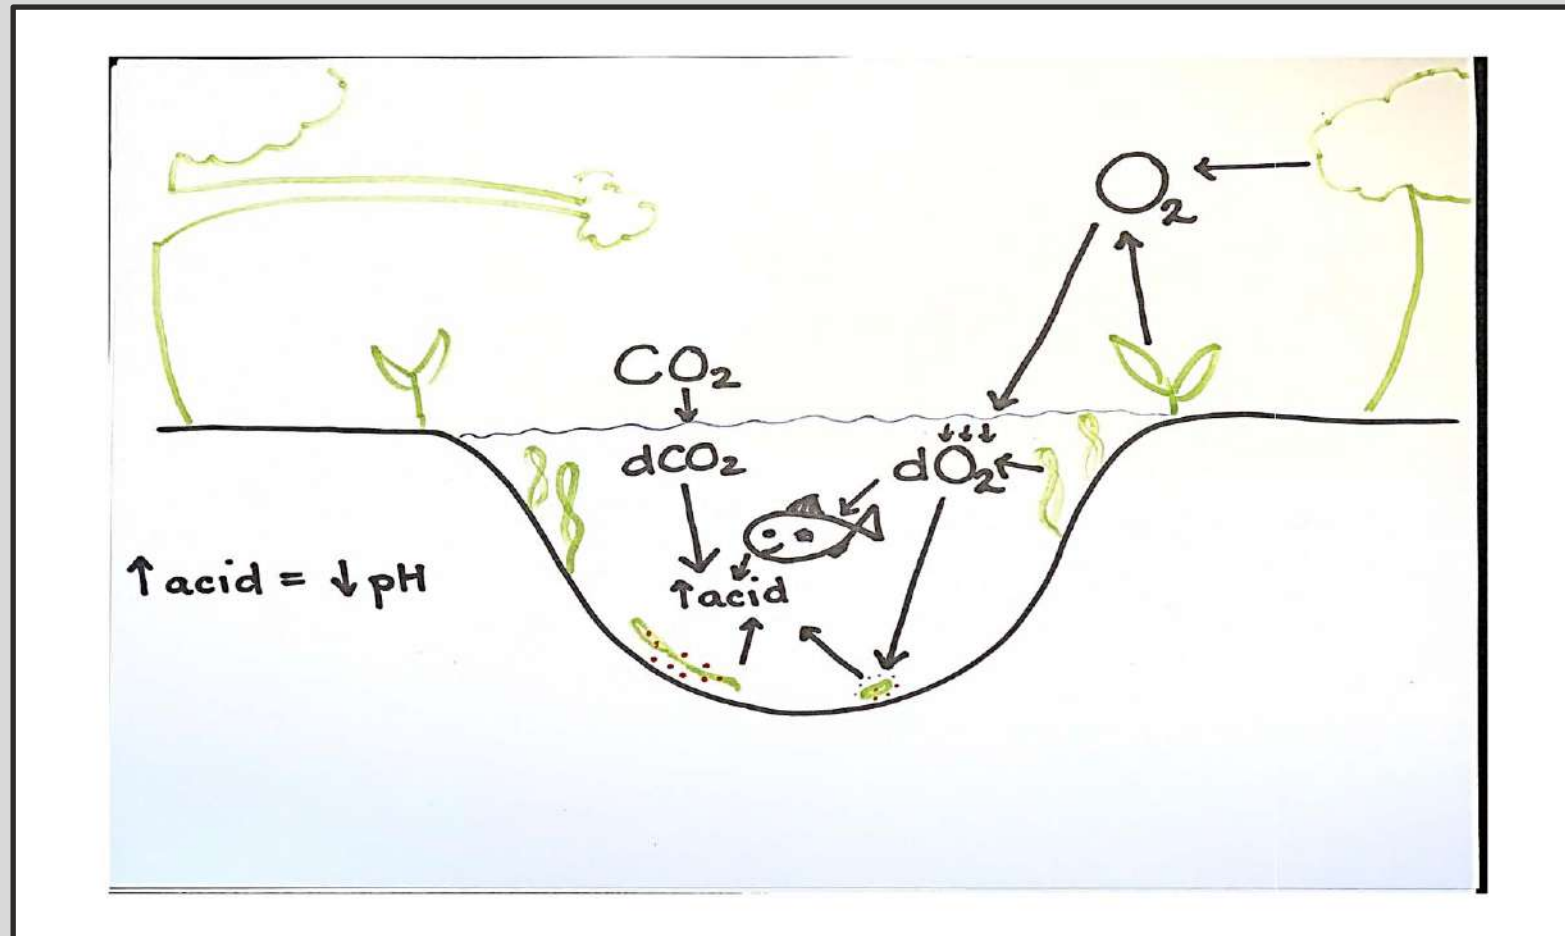 O₂
CO₂
dCO₂
dO₂
↑ acid = ↓ pH
↑ acid